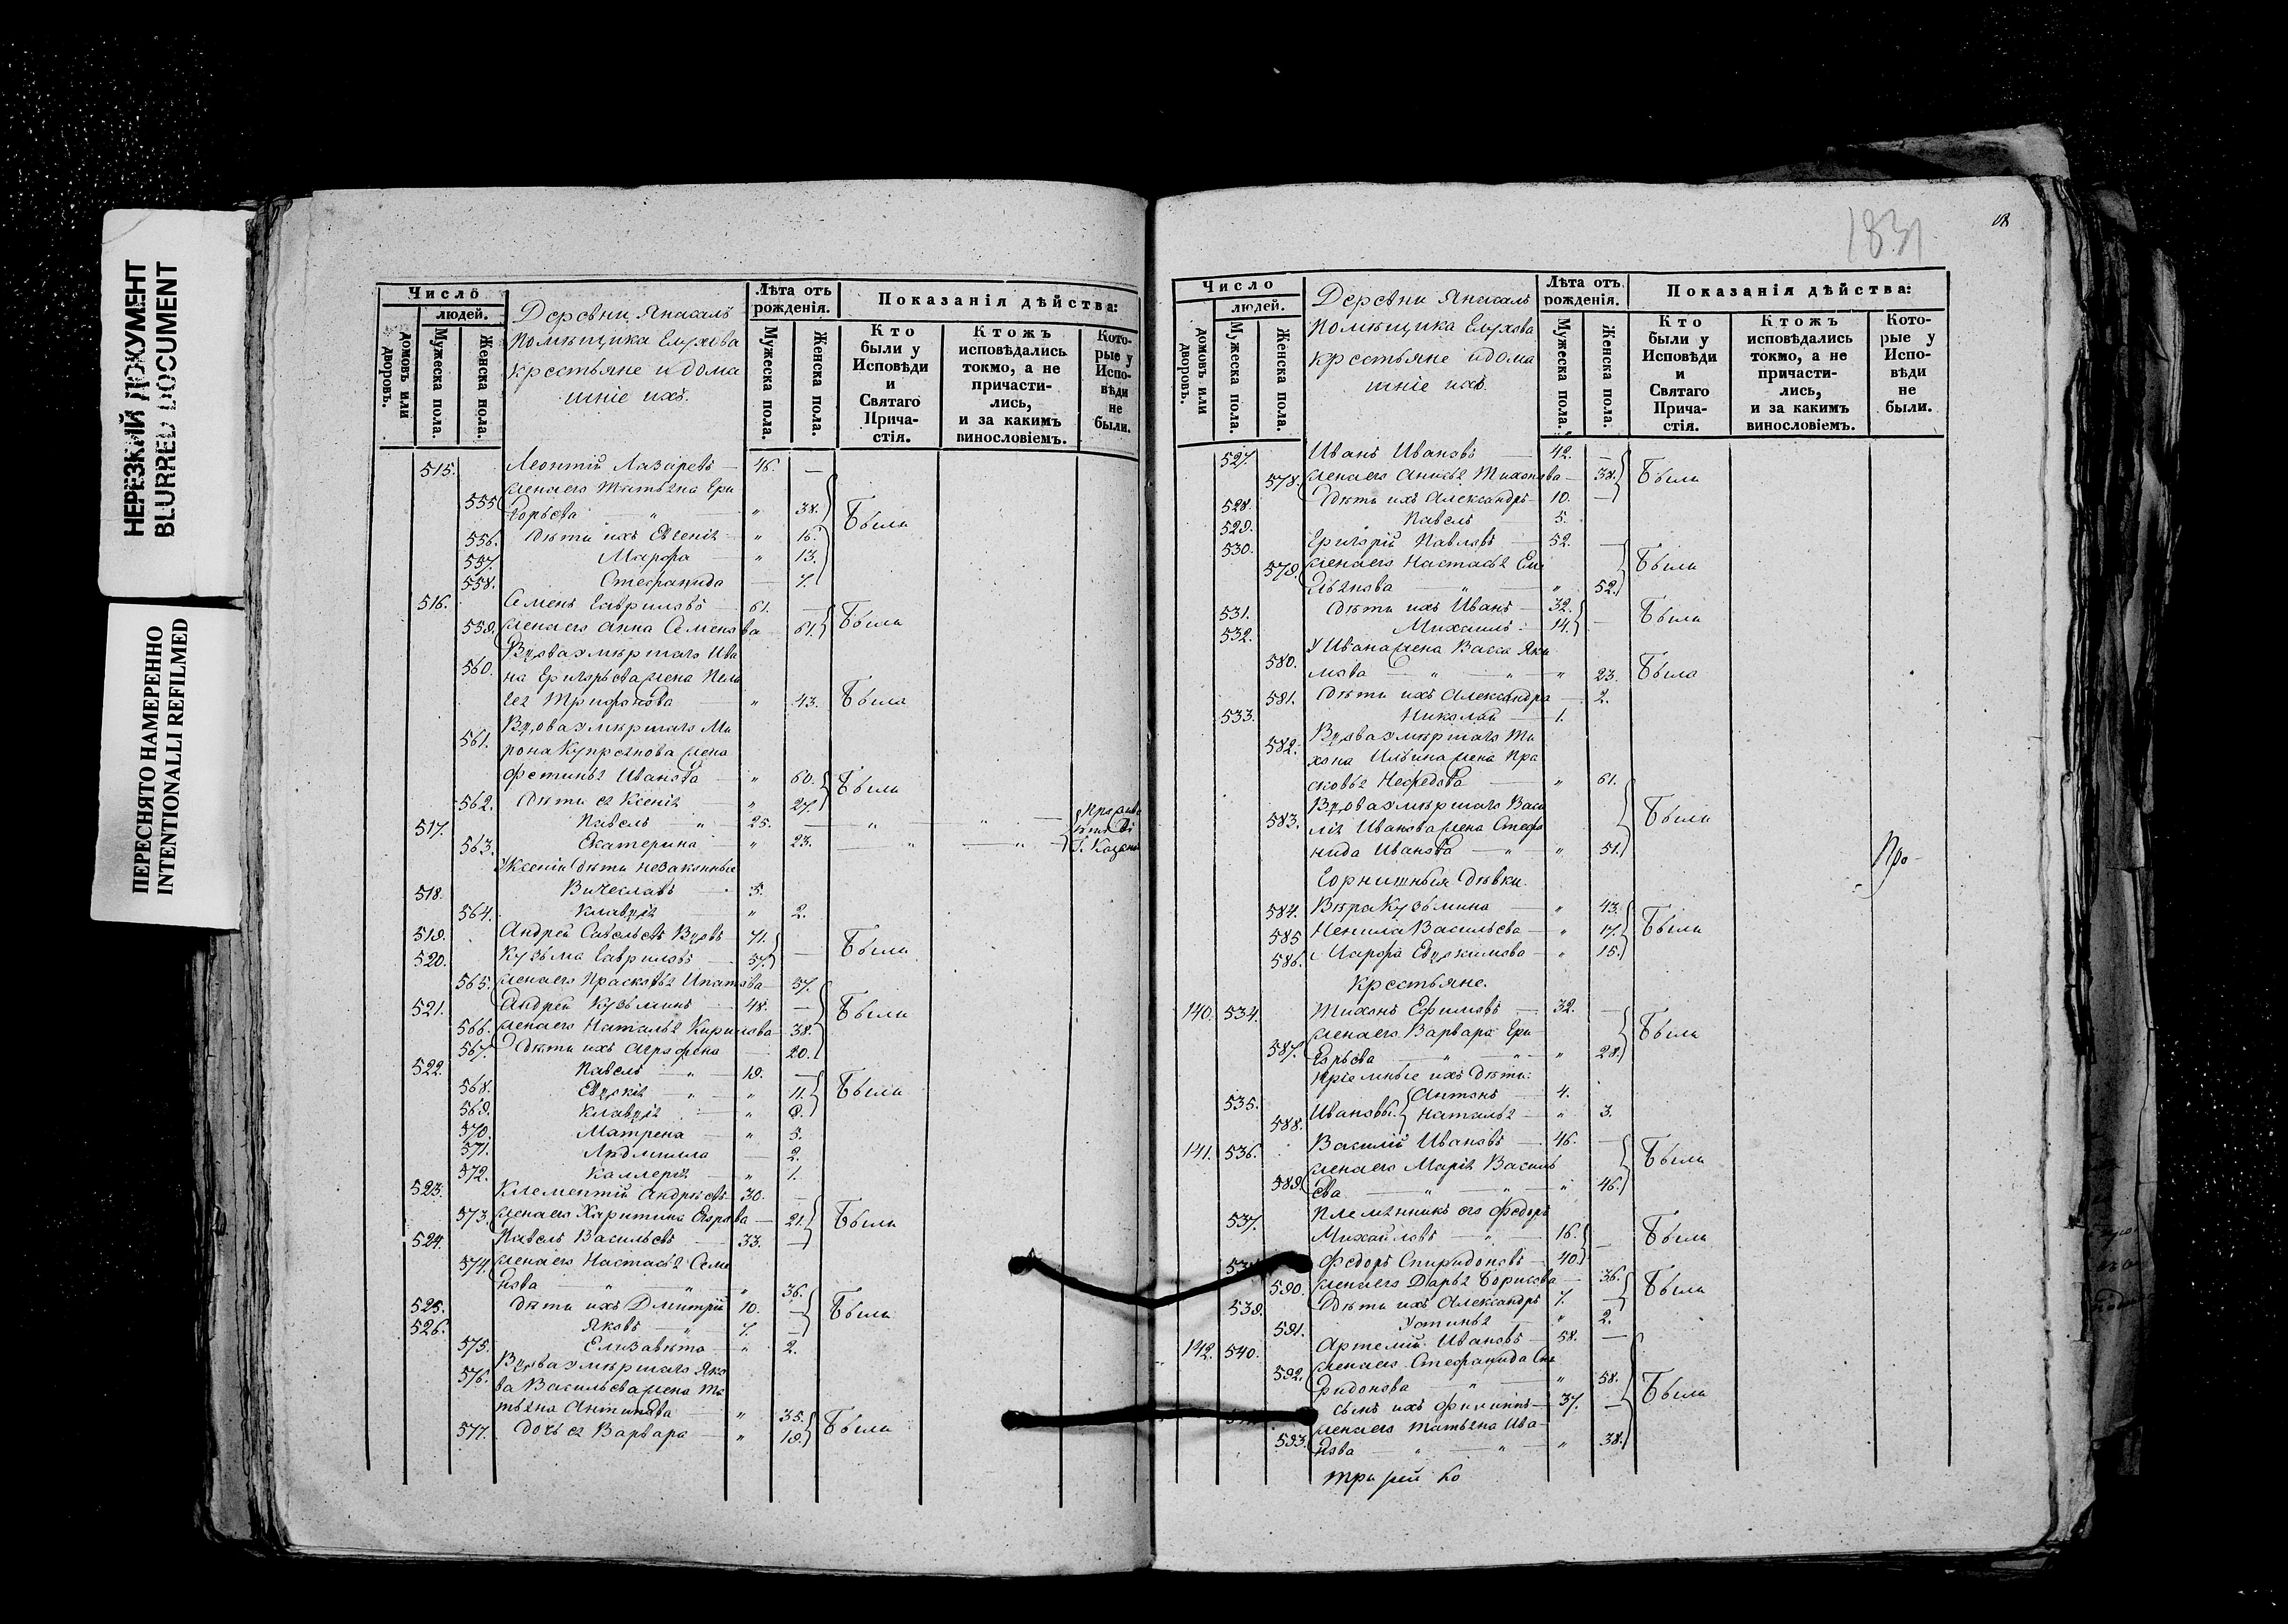 НЕРЕЗКИЙ ДОКУМЕНТ
BLURRED DOCUMENT
ПЕРЕСНЯТО НАМЕРЕННО
INTENTIONALLI REFILMED
Число
людей.
домовъ или дворовъ.
Мужеска пола.
Женска пола.
Деревни
помѣщика Елухова
крестьяне и дома
шніе ихъ.
Лѣта отъ рожденія.
Мужеска пола.
Женска пола.
Показанія дѣйства:
Кто были у Исповѣди и Святаго Прича-стія.
Ктожъ исповѣдались токмо, а не причасти-лись, и за какимъ винословіемъ.
Кото-рые у Испо-вѣди не были.
515. Леонтій Лазаревъ — 46. —
жена его Татьяна Гри
555 горьева " " 38. Были
556. Дѣти ихъ Евгенія " 16.
557. Марфа " 13.
558. Стефанида — 7.
516. Семенъ Гавриловъ 61. —
559. жена его Анна Семенова 61. Были
Вдова умершаго Ива
560. на Григорьева жена Пела
гея Трифонова " 43. Была
Вдова умершаго Ми
561. рона Купреянова жена
Фетинья Иванова " 60. Были
562. Дѣти ея Ксенія " 27.
517. Павелъ " 25. — " "
563. Екатерина " 23. — " "
У Ксеніи дѣти незаконные
518. Вячеславъ 5.
564. Клавдія " 2.
519. Андрей Савельевъ Вдовъ 71. — Были
520. Кузьма Гавриловъ 57.
565. жена его Прасковья Ипатова 57.
521. Андрей Кузьминъ 48. — Были
566. жена его Наталья Кирилова 38.
567. Дѣти ихъ Аграфена — 20.
522. Павелъ " 19. —
568. Евдокія " " 11. Были
569. Клавдія " 9.
570. Матрена " 5.
571. Людмилла — 2.
572. Каллерія " 1.
523. Клементій Андреевъ 30. —
573. жена его Харитина Егорова 21. Были
524. Павелъ Васильевъ 33. —
574. жена его Настасья Семе
нова " " " 36.
525. Дѣти ихъ Дмитрій 10. — Были
526. Яковъ " 7. —
575. Елизавета " 2.
Вдова умершаго Яко
576. ва Васильева жена Та
тьяна Антипова " 35. Были
577. Дочь ея Варвара " 19.
1831
Число
людей.
домовъ или дворовъ.
Мужеска пола.
Женска пола.
Деревни
помѣщика Елухова
крестьяне и дома
шніе ихъ.
Лѣта отъ рожденія.
Мужеска пола.
Женска пола.
Показанія дѣйства:
Кто были у Исповѣди и Святаго Прича-стія.
Ктожъ исповѣдались токмо, а не причасти-лись, и за какимъ винословіемъ.
Кото-рые у Испо-вѣди не были.
527. Иванъ Ивановъ 42. —
578. жена его Анисья Тихонова 38. Были
528. Дѣти ихъ Александръ 10. —
529. Павелъ 5.
530. Григорій Павловъ 52. —
579. жена его Настасья Еме Были
льянова " " 52.
531. Дѣти ихъ Иванъ 32. — Были
532. Михаилъ 14.
У Ивана жена Васса Яки
580. мова " " " 23. Была
581. Дѣти ихъ Александра 2.
533. Николай 1.
Вдова умершаго Ти
582. хона Ильина жена Пра
сковья Нефедова " 61.
Вдова умершаго Васи
583. лія Иванова жена Стефа Были
нида Иванова " " 51.
Про-
Горнишныя дѣвки.
584. Вѣра Кузьмина " 43.
585 Ненила Васильева " 17. Были
586. Марфа Евдокимова " 15.
Крестьяне.
140. 534. Тихонъ Ефимовъ 32. —
жена его Варвара Гри Были
587. горьева " " " 28.
пріемные ихъ дѣти:
535. Антонъ 4.
Ивановы.
588. Наталья " 3.
141. 536. Василій Ивановъ 46. —
жена его Марія Василь Были
589. ева " " " 46.
537. Племянникъ его Федоръ
Михайловъ " 16. Были
Федоръ Спиридоновъ 40.
590. жена его Дарья Борисова 36. Были
539. Дѣти ихъ Александръ 7. —
591. Устинья " 2.
142. 540. Артемій Ивановъ 58. —
592. жена его Стефанида Спи
ридонова " " 58. Были
сынъ ихъ Филиппъ 37. —
жена его Татьяна Ива
593. нова " " " 38.